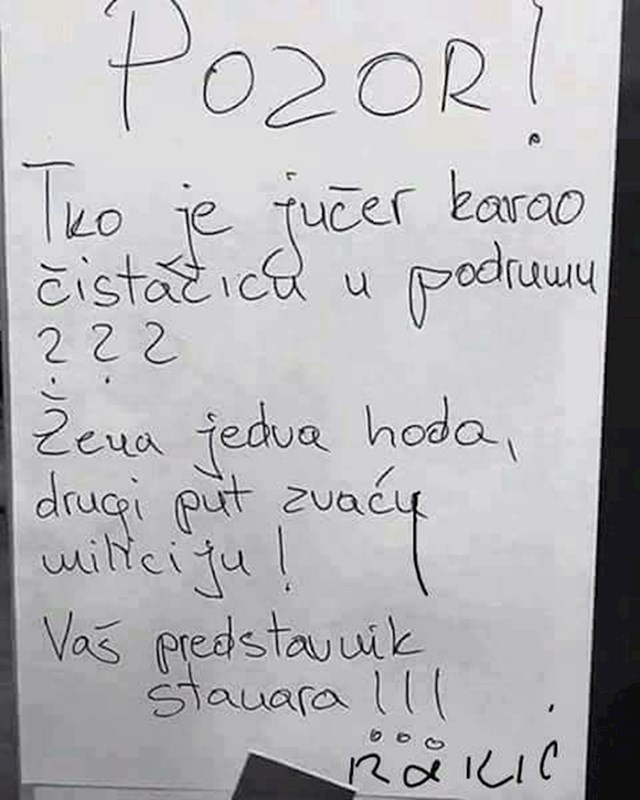 POZOR!
Tko je jučer karao
čistačicu u podrumu
???
Žena jedva hoda,
drugi put zvaću
miliciju!
Vaš predstavnik
stanara!!!
RAKIĆ